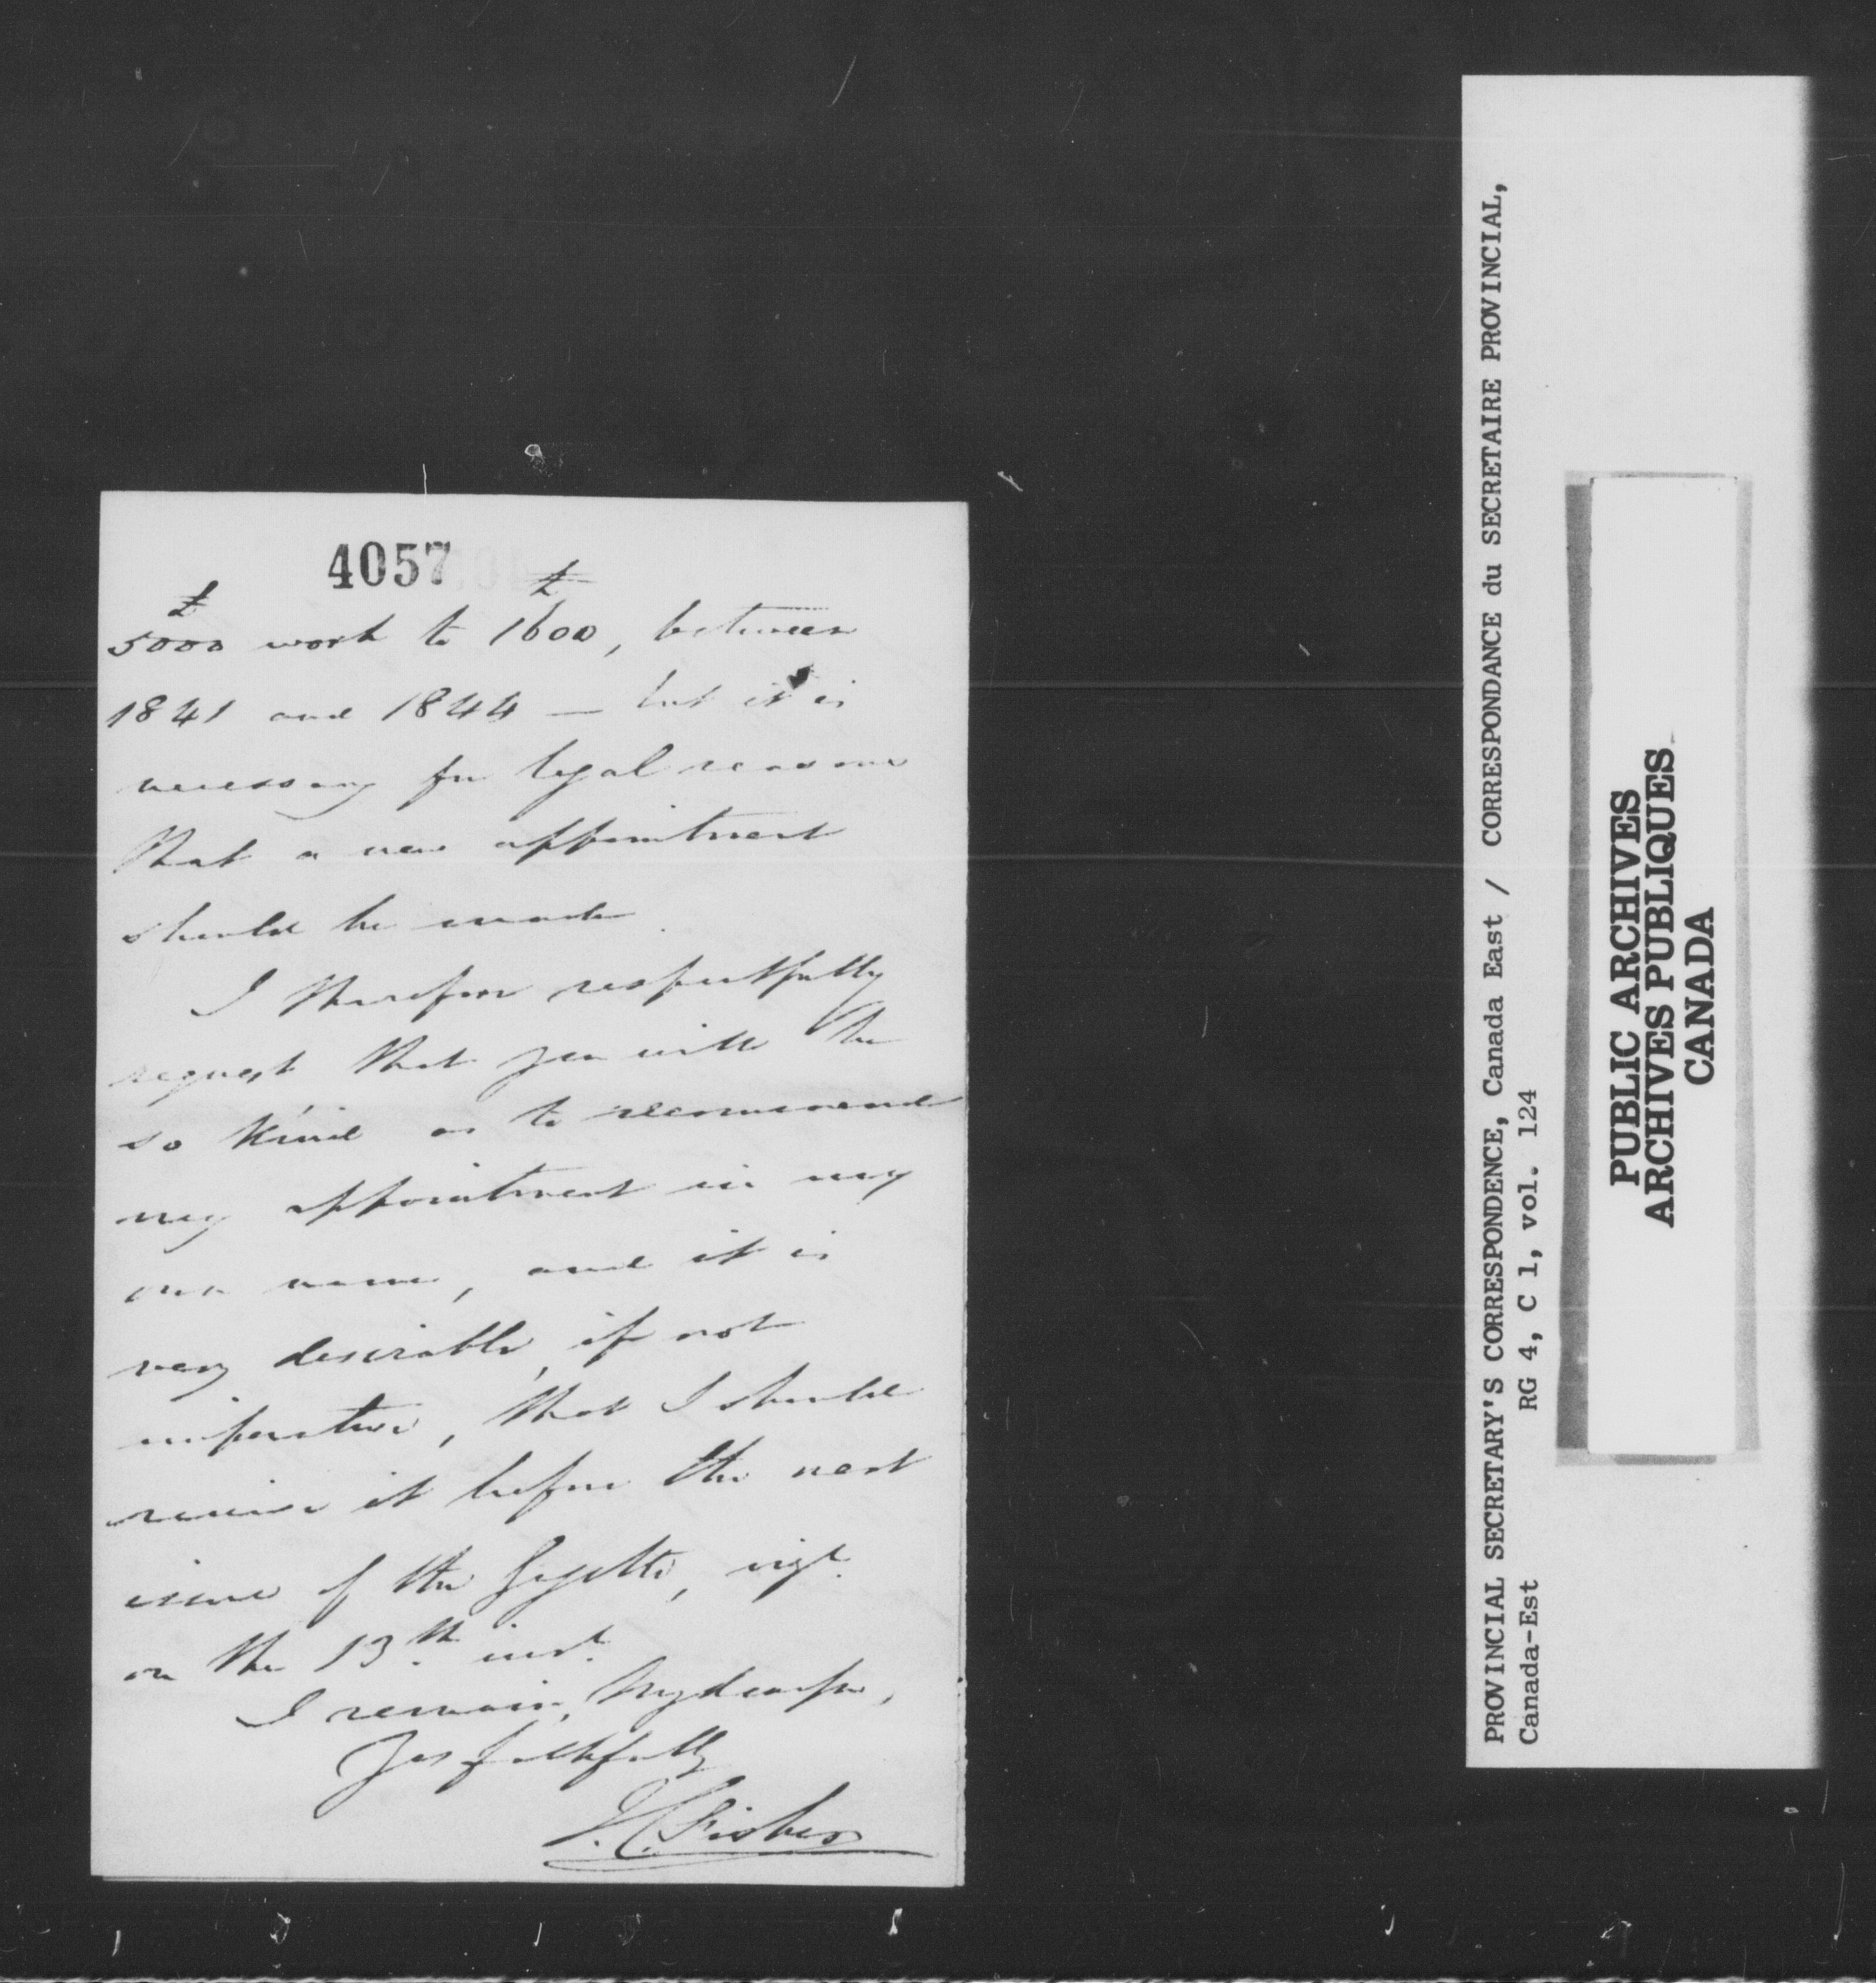 4057
£5000 work to £1600, between
1841 and 1844 — but it is
necessary for legal reasons
that a new appointment
should be made.
I therefore respectfully
request that you will be
so kind as to recommend
my appointment in my
own name, and it is
very desirable, if not
imperative, that I should
receive it before the next
issue of the Gazette, vizt.
on the 13th inst.
I remain, My dear Sir,
Yrs faithfully
J. C. Fisher
PROVINCIAL SECRETARY'S CORRESPONDENCE, Canada East / CORRESPONDANCE du SECRETAIRE PROVINCIAL,
Canada-Est RG 4, C 1, vol. 124
PUBLIC ARCHIVES
ARCHIVES PUBLIQUES
CANADA